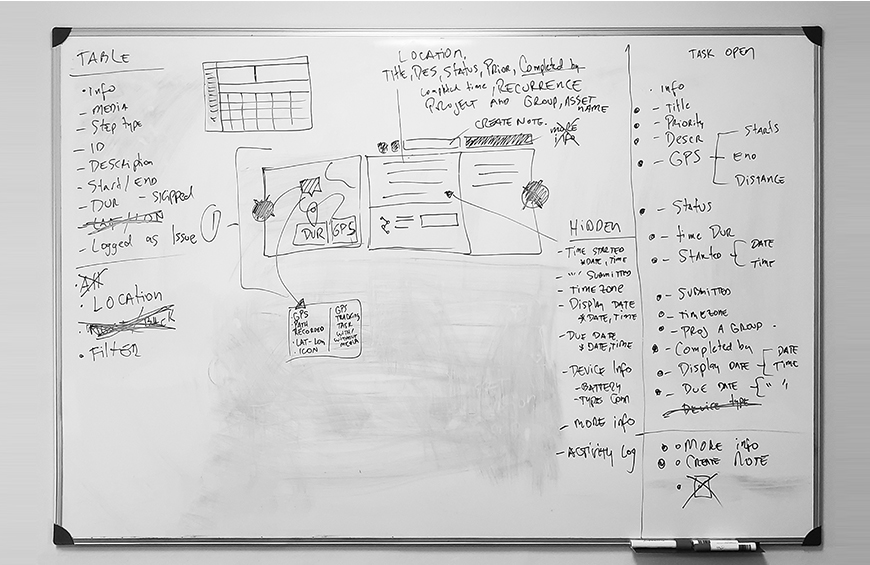 TABLE
• Info
- MEDIA
- Step type
- ID
- DEScription
- Start/END
- DUR - SKIPPED
- LAT/LON
- Logged as Issue
• All
LOCATION
• FilteR
LOCATION,
TITLE, DES, STATUS, PRIOR, Completed by
time, RECURRENCE
PROJECT AND GROUP, ASSET NAME
CREATE NOTE.
more info
1
DUR GPS
GPS
PATH
RECORDED
• LAT-LON
• ICON
GPS
TRACKING
TASK
WITH/
WITHOUT
MEDIA
HIDDEN
- TIME STARTED
* DATE, TIME
- "" SUBMITTED
- TIMEZONE
- Display DATE
* DATE, TIME
- DUE DATE
* DATE, TIME
- DEVICE Info
- BATTERY
- TYPES Conn
- MORE info
- ACTIVITY LOG
TASK OPEN
• Info
- Title
- Priority
- Descr
- GPS
STARTS
END
DISTANCE
- STATUS
- time DUR
- STARTED
DATE
TIME
- SUBMITTED
- timezone
- PROJ & GROUP.
- Completed by
- Display DATE
DATE
TIME
- DUE DATE " "
- DEVICE type
• MORE info
• CREATE NOTE